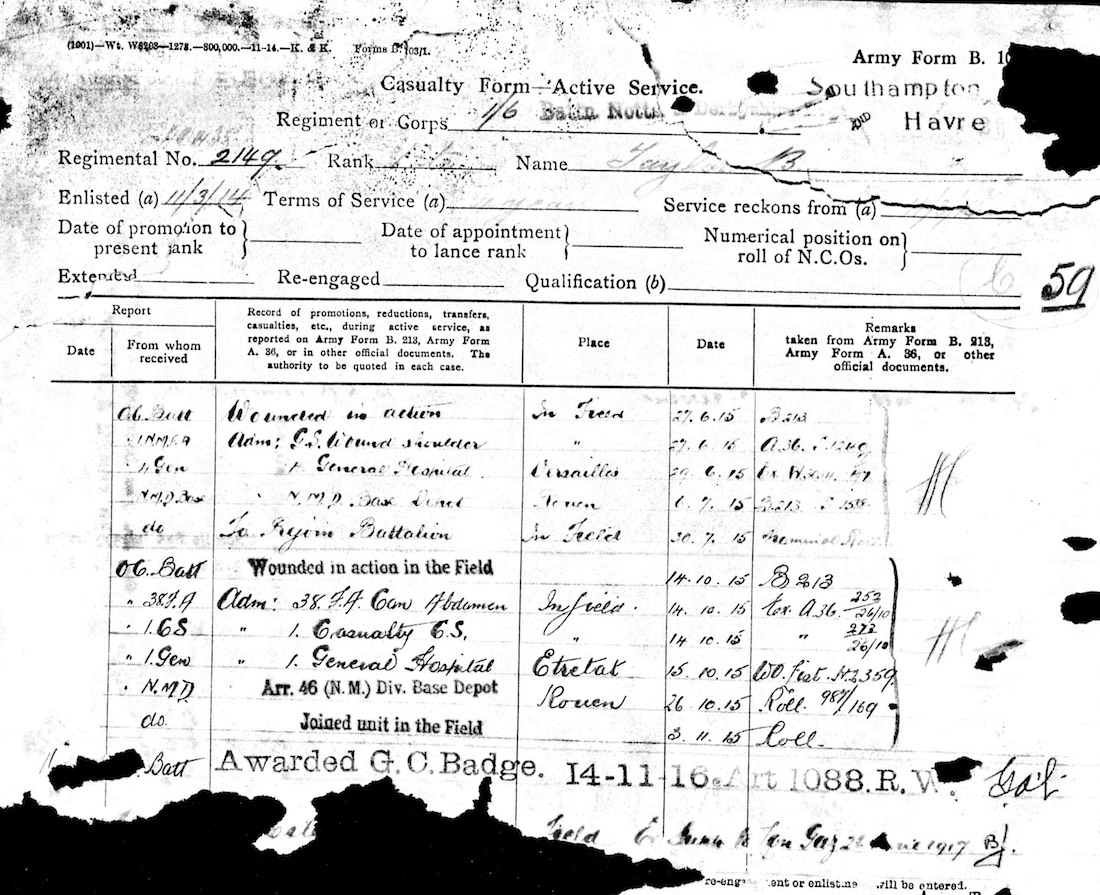 (1001)—Wt. W6203—1273.—800,000.—11-14.—K. & K. Forms B. 103/1.
Army Form B. 10
Casualty Form—Active Service.
Southampton
AND Havre
Regiment or Corps 1/6 Battn Notts & Derbyshire
Regimental No. 2149. Rank Name Taylor B
Enlisted (a) 11/3/14 Terms of Service (a) Service reckons from (a)
Date of promotion to present rank
Date of appointment to lance rank
Numerical position on roll of N.C.Os.
Extended Re-engaged Qualification (b)
59
Report
Date
From whom received
Record of promotions, reductions, transfers, casualties, etc., during active service, as reported on Army Form B. 213, Army Form A. 36, or in other official documents. The authority to be quoted in each case.
Place
Date
Remarks taken from Army Form B. 213, Army Form A. 36, or other official documents.
O.C. Batt Wounded in action In Field 27.6.15 B213
Adm: G.S. Wound shoulder " 27.6.15 A36.
Gen 1. General Hospital Versailles 29.6.15
N.M.D. Base " N.M.D. Base Depot Rouen 6.7.15 B213
do To Rejoin Battalion In Field 30.7.15
O.C. Batt Wounded in action in the Field 14.10.15 B213
" 38 F.A Adm: 38. F.A. Con Abdomen In field. 14.10.15 Ex. A36. 253 26/10
" 1. CS " 1. Casualty C.S. " 14.10.15 " 273 26/10
" 1. Gen " 1. General Hospital Etretat 15.10.15 WO. List. H.2359
" N.M.D Arr. 46 (N.M.) Div. Base Depot Rouen 26.10.15 Roll 987/169
do. Joined unit in the Field 3.11.15 Roll.
Batt Awarded G.C. Badge. 14-11-16. Art 1088. R.W.
Field Gaz 1917
ent or enlist will be entered.